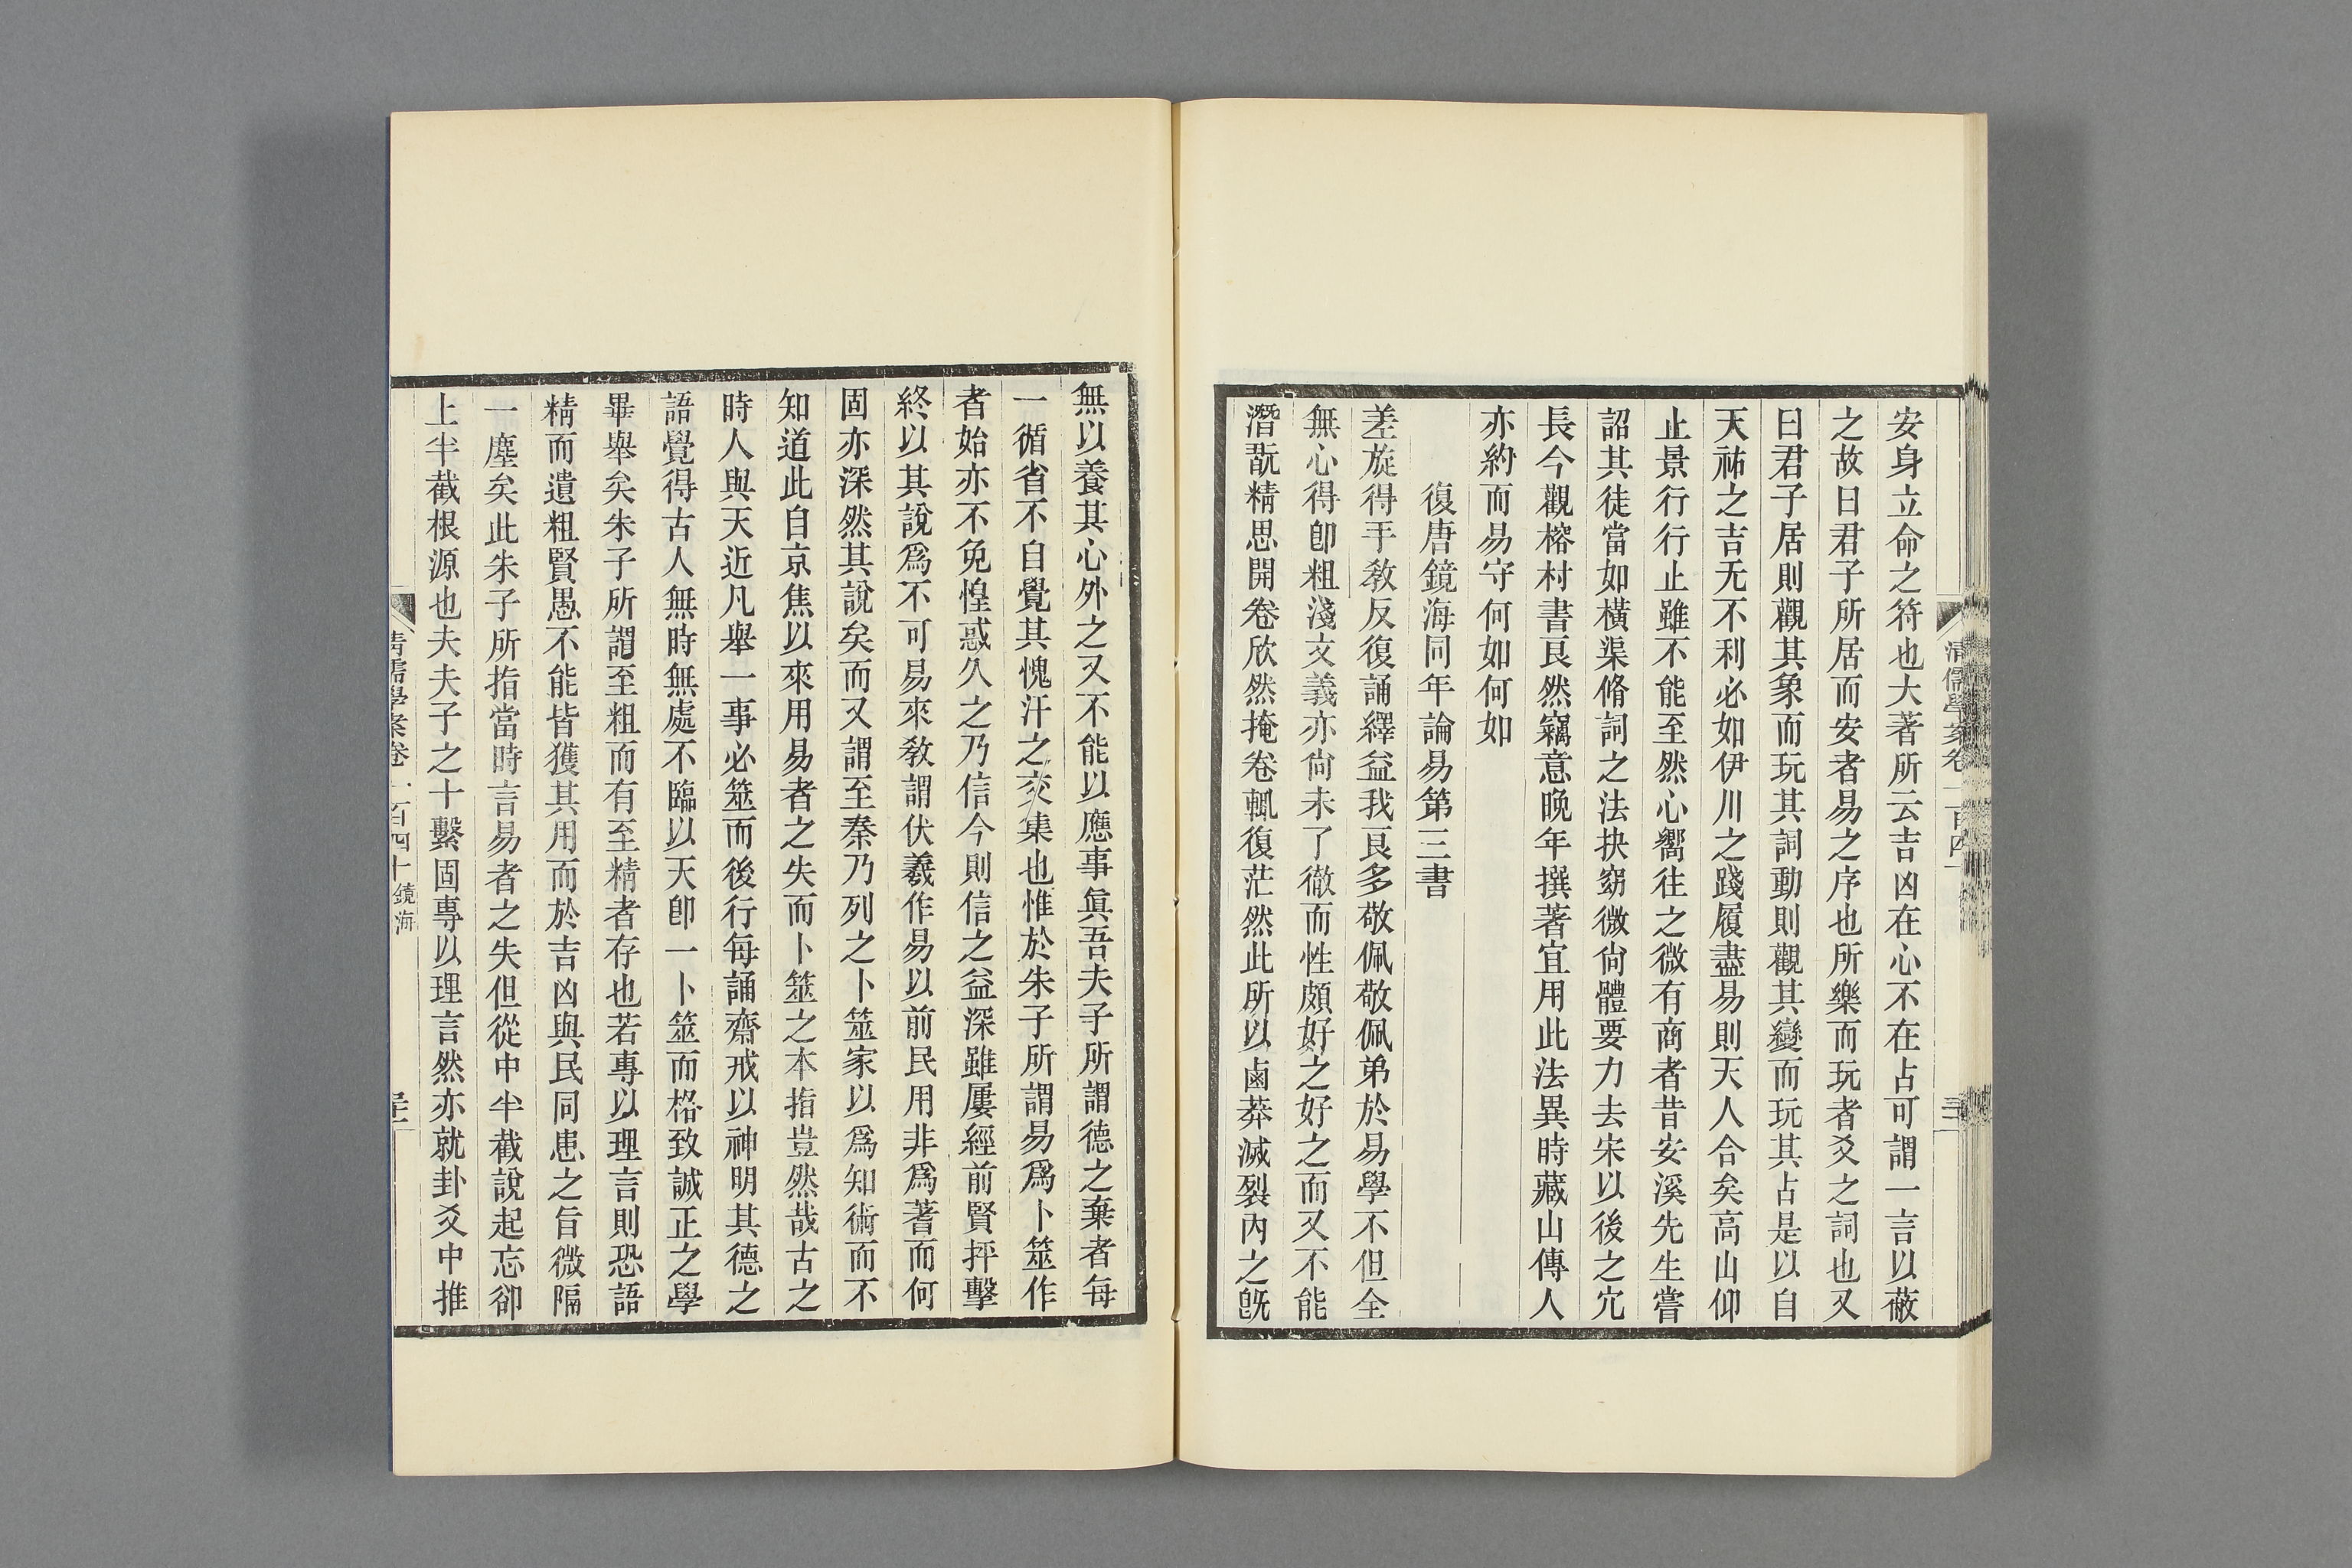 安身立命之符也大著所云吉凶在心不在占可謂一言以蔽
之故曰君子所居而安者易之序也所樂而玩者爻之詞也又
曰君子居則觀其象而玩其詞動則觀其變而玩其占是以自
天祐之吉无不利必如伊川之踐履盡易則天人合矣高山仰
止景行行止雖不能至然心嚮往之微有商者昔安溪先生嘗
詔其徒當如橫渠脩詞之法抉窮微尙體要力去宋以後之宂
長今觀榕村書良然竊意晚年撰著宜用此法異時藏山傳人
亦約而易守何如何如
復唐鏡海同年論易第三書
差旋得手敎反復誦繹益我良多敬佩敬佩弟於易學不但全
無心得卽粗淺文義亦尙未了徹而性頗好之好之而又不能
潛翫精思開卷欣然掩卷輒復茫然此所以鹵莽滅裂內之旣
無以養其心外之又不能以應事眞吾夫子所謂德之棄者每
一循省不自覺其愧汗之交集也惟於朱子所謂易爲卜筮作
者始亦不免惶惑久之乃信今則信之益深雖屢經前賢抨擊
終以其說爲不可易來敎謂伏羲作易以前民用非爲蓍而何
固亦深然其說矣而又謂至秦乃列之卜筮家以爲知術而不
知道此自京焦以來用易者之失而卜筮之本指豈然哉古之
時人與天近凡舉一事必筮而後行每誦齋戒以神明其德之
語覺得古人無時無處不臨以天卽一卜筮而格致誠正之學
畢舉矣朱子所謂至粗而有至精者存也若專以理言則恐語
精而遺粗賢愚不能皆獲其用而於吉凶與民同患之旨微隔
一塵矣此朱子所指當時言易者之失但從中半截說起忘卻
上半截根源也夫夫子之十繫固專以理言然亦就卦爻中推
清儒學案卷一百四十 鏡海